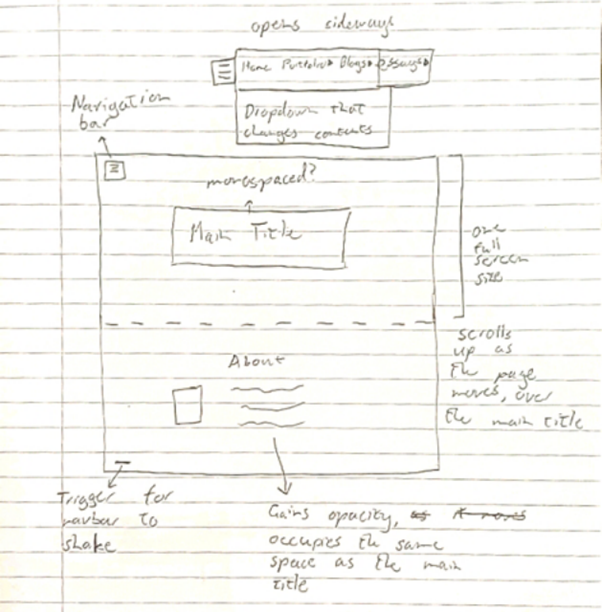 opens sideways
Home Portfolio Blogs Essays
Dropdown that
changes contents
Navigation
bar
monospaced?
Main Title
one
full
screen
size
About
scrolls
up as
the page
moves, over
the main title
Trigger for
navbar to
shake
Gains opacity, as it moves
occupies the same
space as the main
title